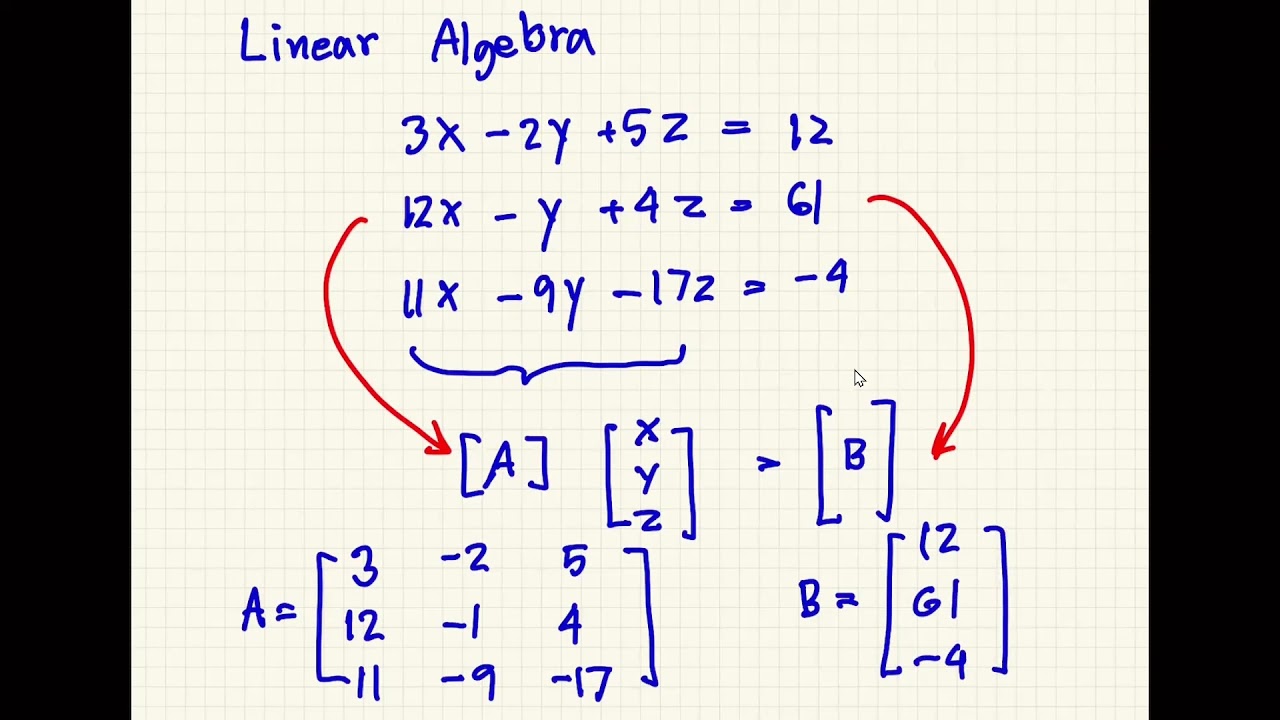 Linear Algebra
3x - 2y + 5z = 12
12x - y + 4z = 61
11x - 9y - 17z = -4
[A] [x y z] = [B]
A = [3 -2 5
12 -1 4
11 -9 -17]
B = [12
61
-4]